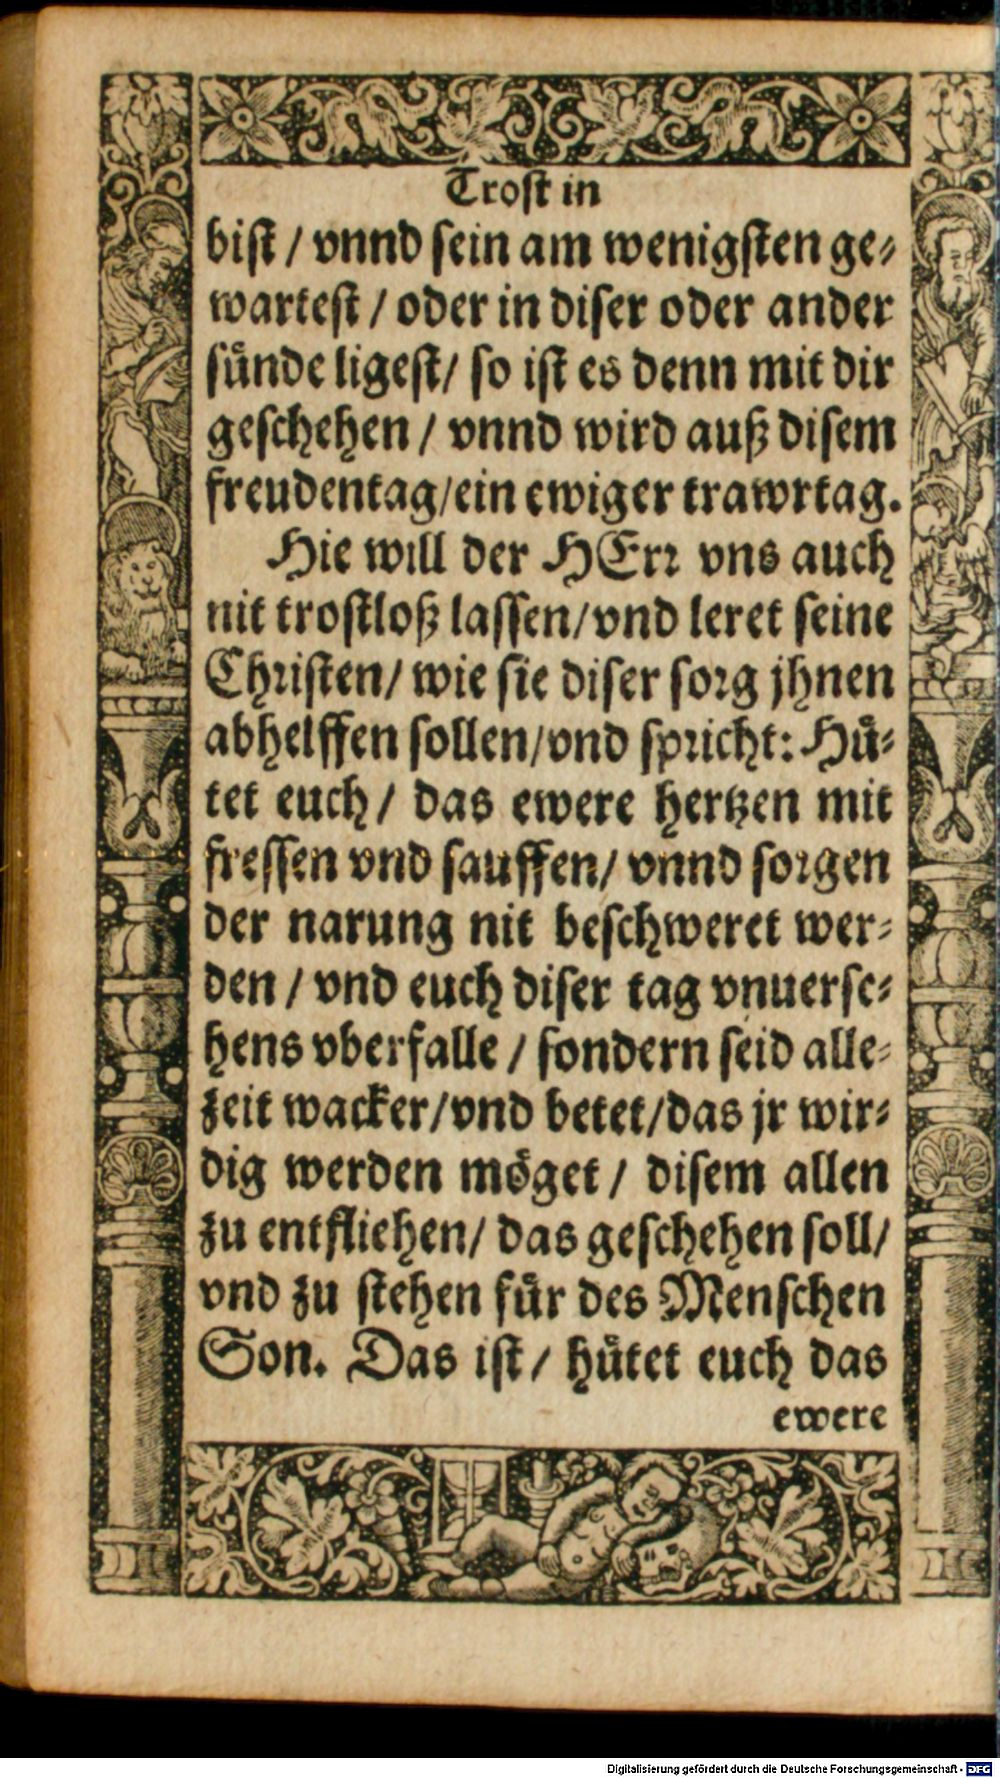 Trost in
bist / vnnd sein am wenigsten ge⸗
wartest / oder in diser oder ander
suͤnde ligest / so ist es denn mit dir
geschehen / vnnd wird auß disem
freudentag / ein ewiger trawrtag.
Hie will der HErr vns auch
nit trostloß lassen / vnd leret seine
Christen / wie sie diser sorg jhnen
abhelffen sollen / vnd spricht: Huͤ⸗
tet euch / das ewere hertzen mit
fressen vnd sauffen / vnnd sorgen
der narung nit beschweret wer⸗
den / vnd euch diser tag vnuerse⸗
hens vberfalle / sondern seid alle⸗
zeit wacker / vnd betet / das jr wir⸗
dig werden moͤget / disem allen
zu entfliehen / das geschehen soll /
vnd zu stehen fuͤr des Menschen
Son. Das ist / huͤtet euch das
ewere
Digitalisierung gefördert durch die Deutsche Forschungsgemeinschaft - DFG